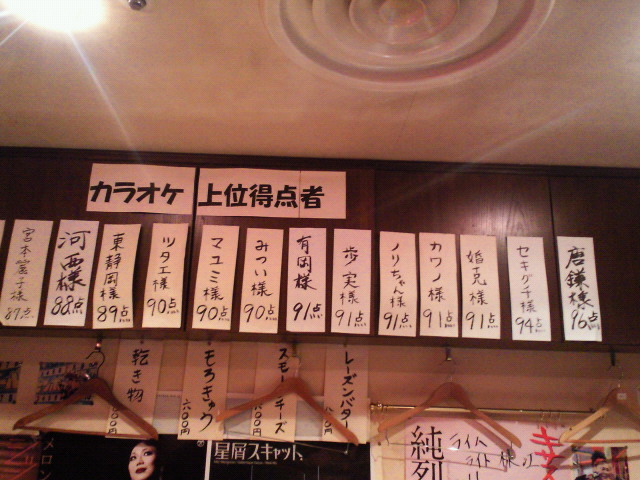 カラオケ 上位得点者
唐鎌様 96点
セキグチ様 94点
婚克様 91点
カワノ様 91点
ノリちゃん様 91点
歩実様 91点
有岡様 91点
みつい様 90点
マユミ様 90点
ツタエ様 90点
東静岡様 89点
河西様 88点
宮本富子様 87点
レーズンバター
スモークチーズ
もろきゅう 六〇〇円
乾き物
メロン
星屑スキャット
純烈